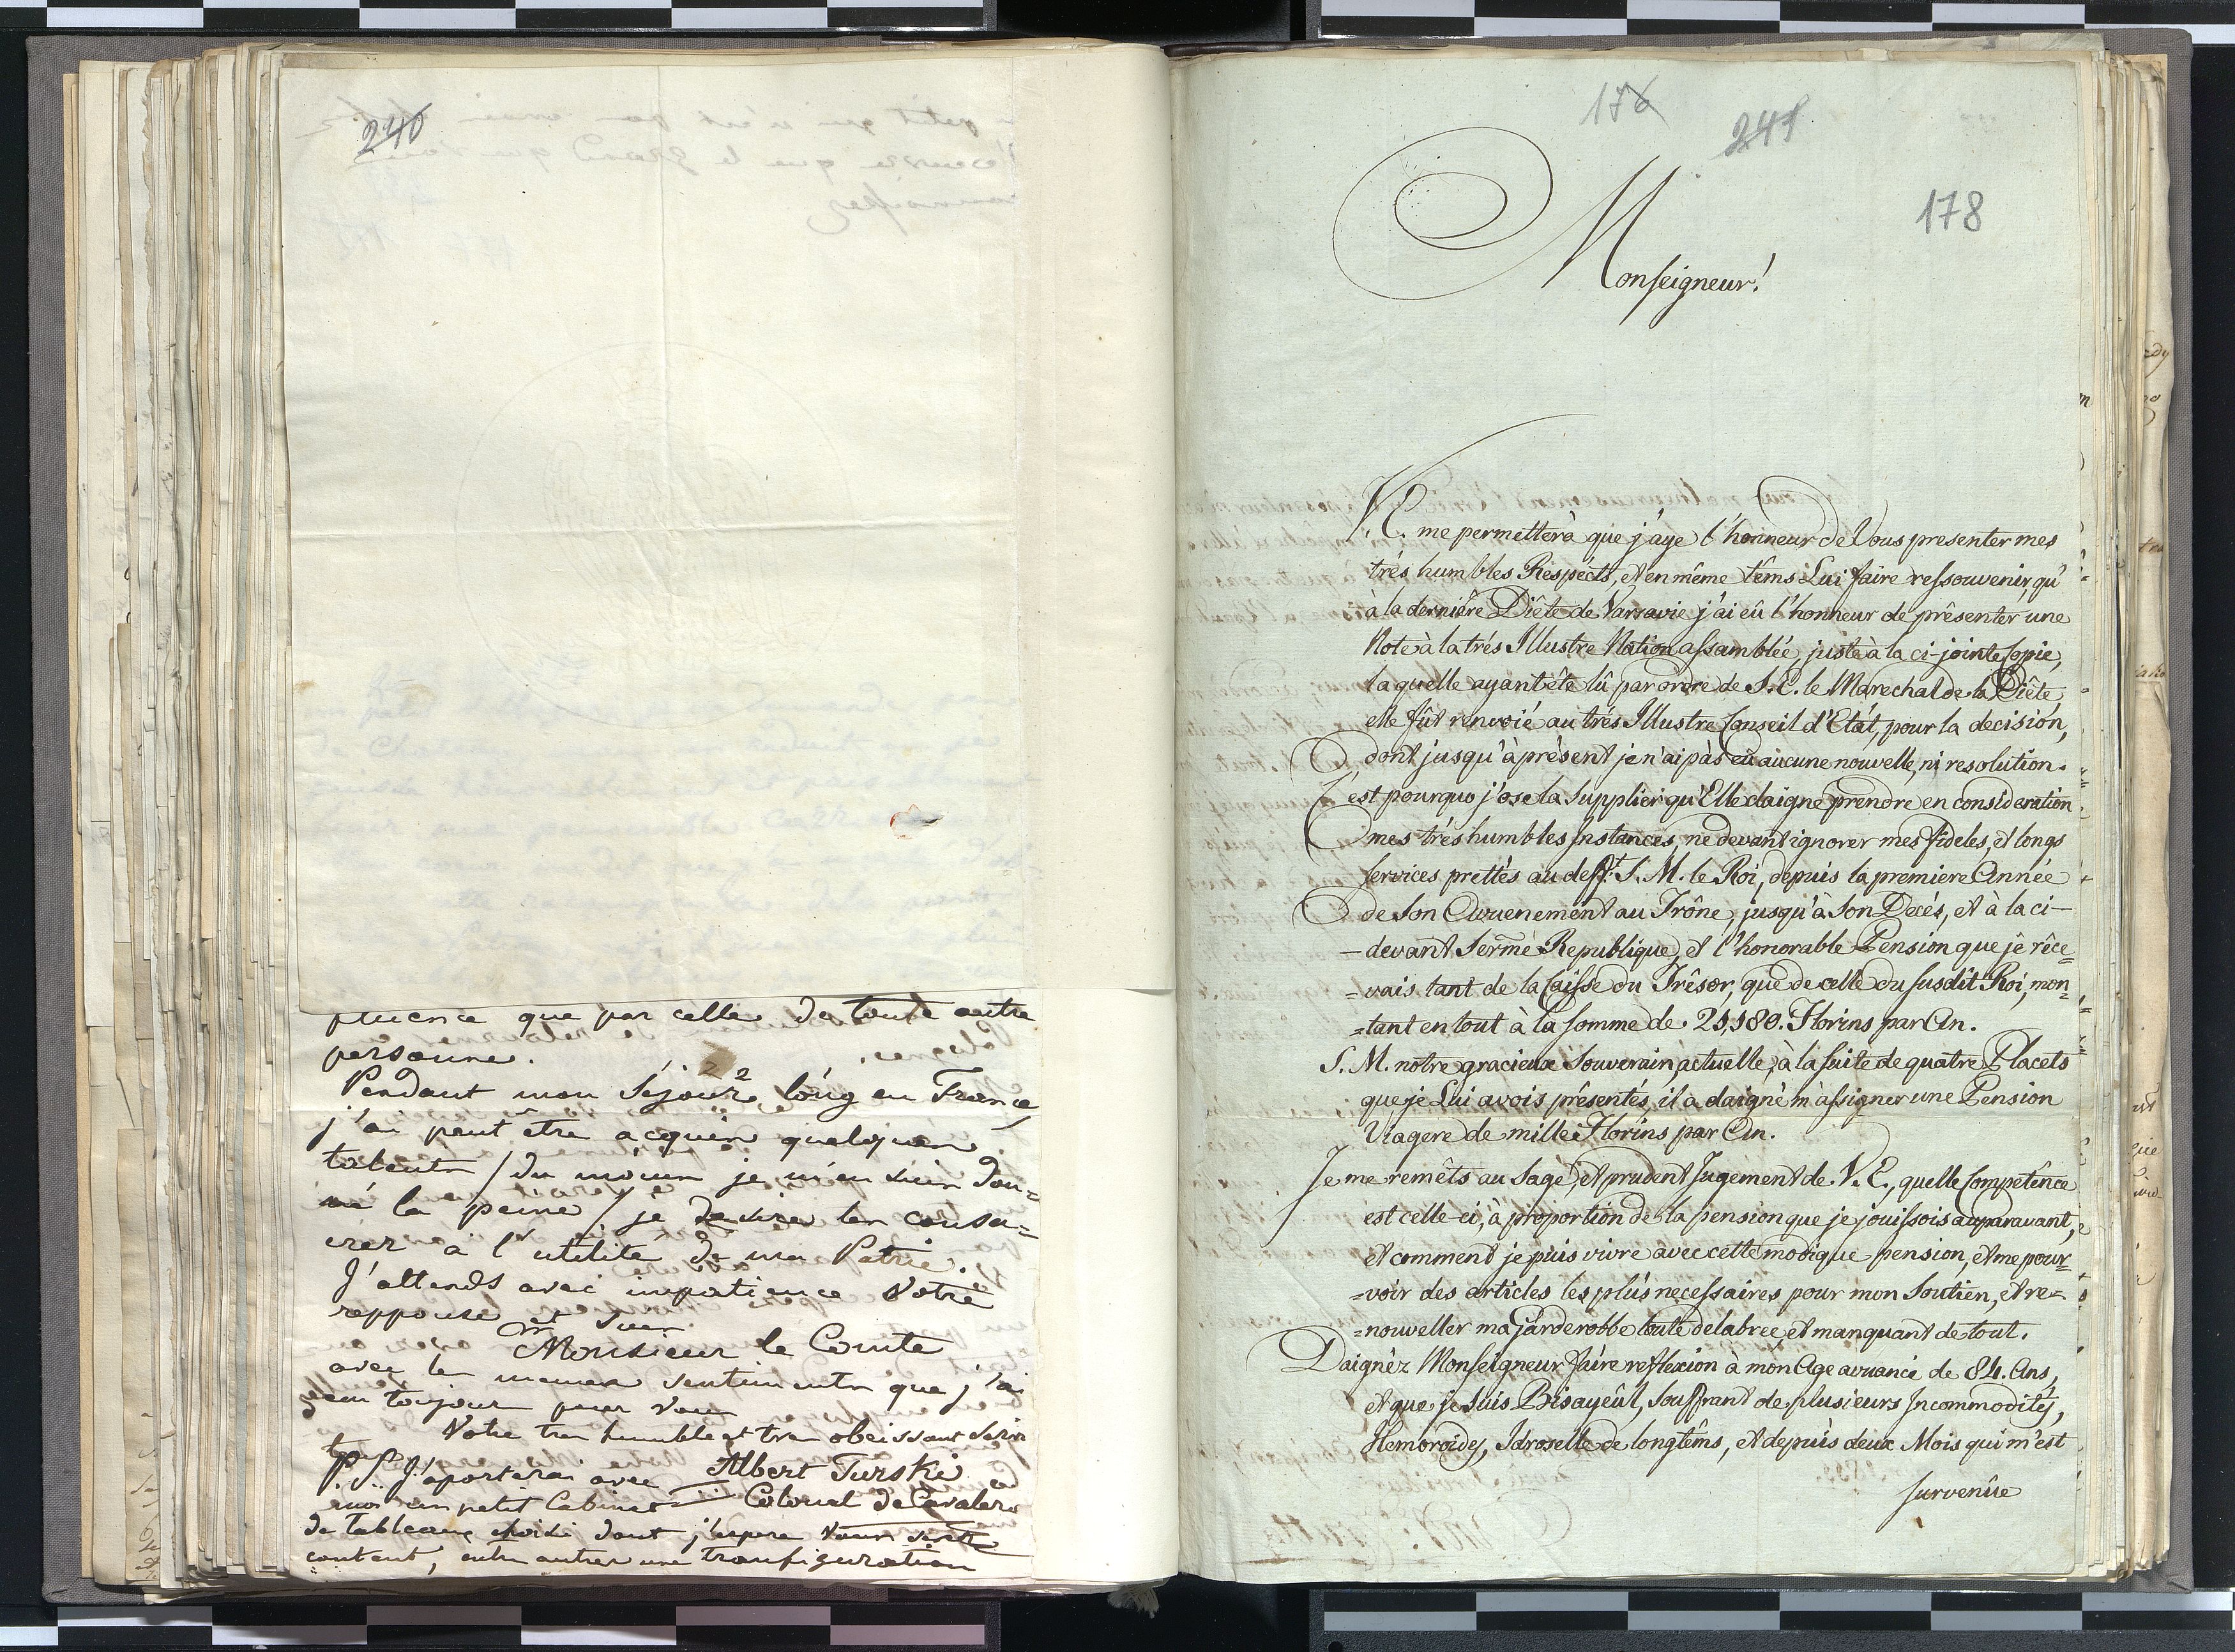 240
pluence que par celle de toute autre
personne.
Pendant mon séjour lóng en France,
j'ai peut être acquis quelques
talents / du moins je m'en suis don=
né la peine / je desire les consa=
crer à l'utilité de ma Patrie.
J'attends avec impatience Votre
repponse et suis
Monsieur le Comte
avec les memes sentiments que j'ai
eu toujours pour Vous
Votre tres humble et tres obeissant
Albert Turski
Colonel de Cavalerie
P. S. J'aporterai avec
moi un petit Cabinet
de tableaux choisi dont j'espere Vous serez
content, entre autres une transfiguration
176
241
178
Monseigneur!
V. E. me permetterà que j'aye l'honneur de Vous presenter mes
trés humbles Respécts, et en même têms Lui faire ressouvenir, qu'
à la derniére Diête de Varsavie j'ai eû l'honneur de présenter une
Note à la trés Illustre Nation assamblée, juste à la ci-jointe Copie,
laquelle ayant été lû par ordre de S. E. le Marechal de la Diête
elle fût renvoié au trés Illustre Conseil d'Etát, pour la decisión,
dont jusqu'à présent je n'ai pàs eû aucune nouvelle, ni resolution.
C'est pourquo j'ose la Supplier qu'Elle daigne prendre en consideration
mes trés humbles Instances, ne devant ignorer mes fideles, et longs
services prettés au deff:t S. M. le Roi, depuis la premiere Année
de Son Avvenement au Trône, jusqu'à Son Decés, et à la ci-
-devant Sermê Republique, et l'honorable Pension que je rêce=
=vais tant de la Caisse du Trêsor, que de celle du susdit Roi, mon=
=tant en tout à la somme de. 21,180. Florins par An.
S. M. notre gracieux Souverain actuelle, à la suite de quatre Placets
que je Lui avois présentés, il a daigné m'assigner une Pension
Viagere de mille Florins par An.
Je me remêts au Sage, et prudent Jugement de V. E., quelle Compétênce
est celle-ci, à proportion de la pension que je jouissois auparavant,
et comment je puis vivre avec cette modique pension, et me pour=
=voir des articles les plús necessaires pour mon Soutien, et re=
=nouveller ma garderobbe toute délabree, et manquant de tout.
Daignéz Monseigneur faire reflexion à món Age avvancé de 84. Ans,
et que je suis Bisayeûl, Souffrand de plusieurs Incommodités,
Hemoroides, Idroselle de longtêms, et depuis deux Mois qui m'est
survenûe